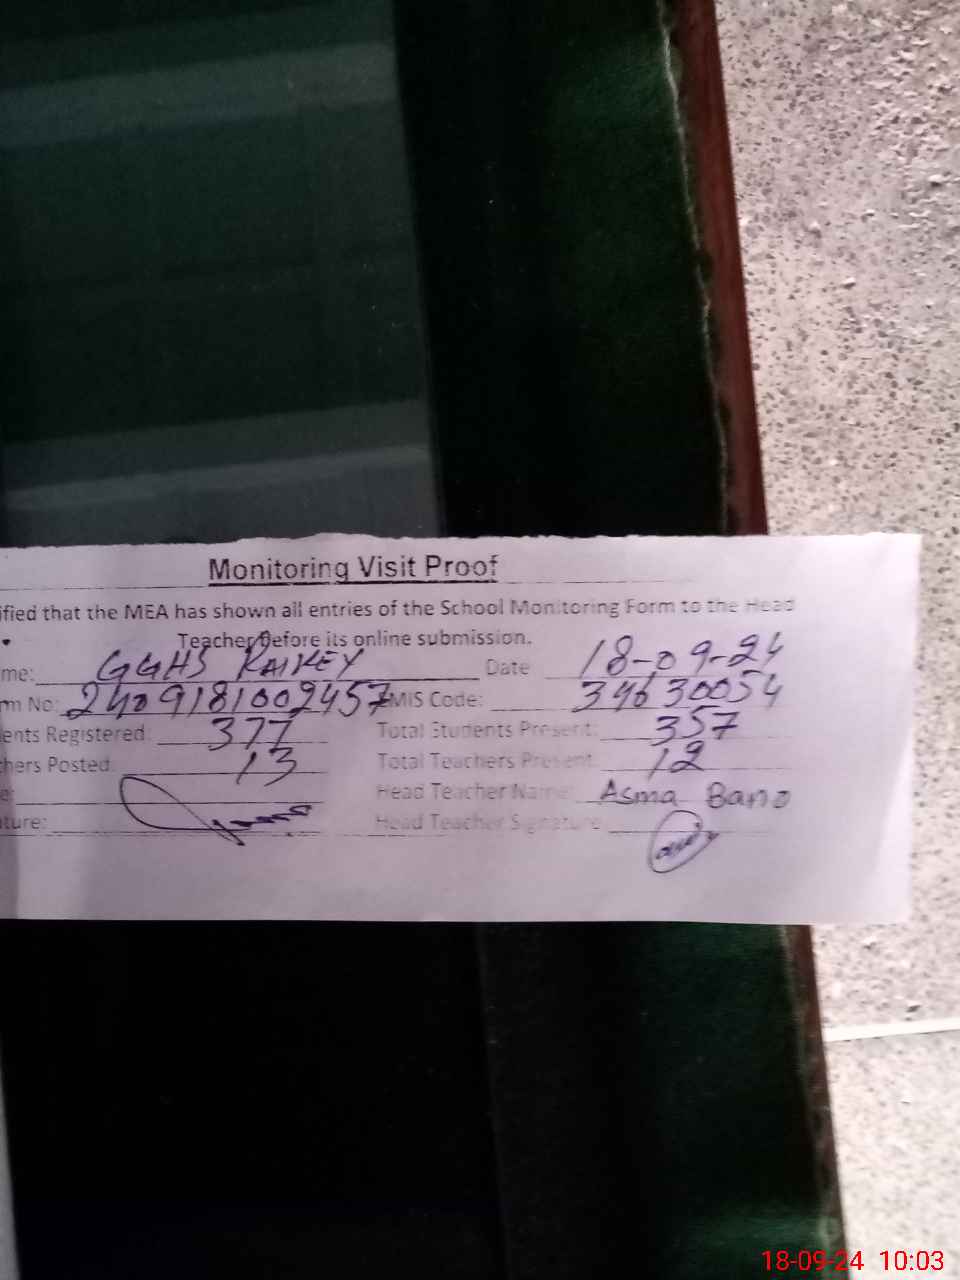 Monitoring Visit Proof
ified that the MEA has shown all entries of the School Monitoring Form to the Head
Teacher Before its online submission.
me: GGHS KAIKEY Date 18-09-24
m No: 2409181002457 EMIS Code: 34630054
ents Registered: 377 Total Students Present: 357
hers Posted 13 Total Teachers Present 12
e: Head Teacher Name: Asma Bano
ture: Head Teacher Signature
18-09-24 10:03